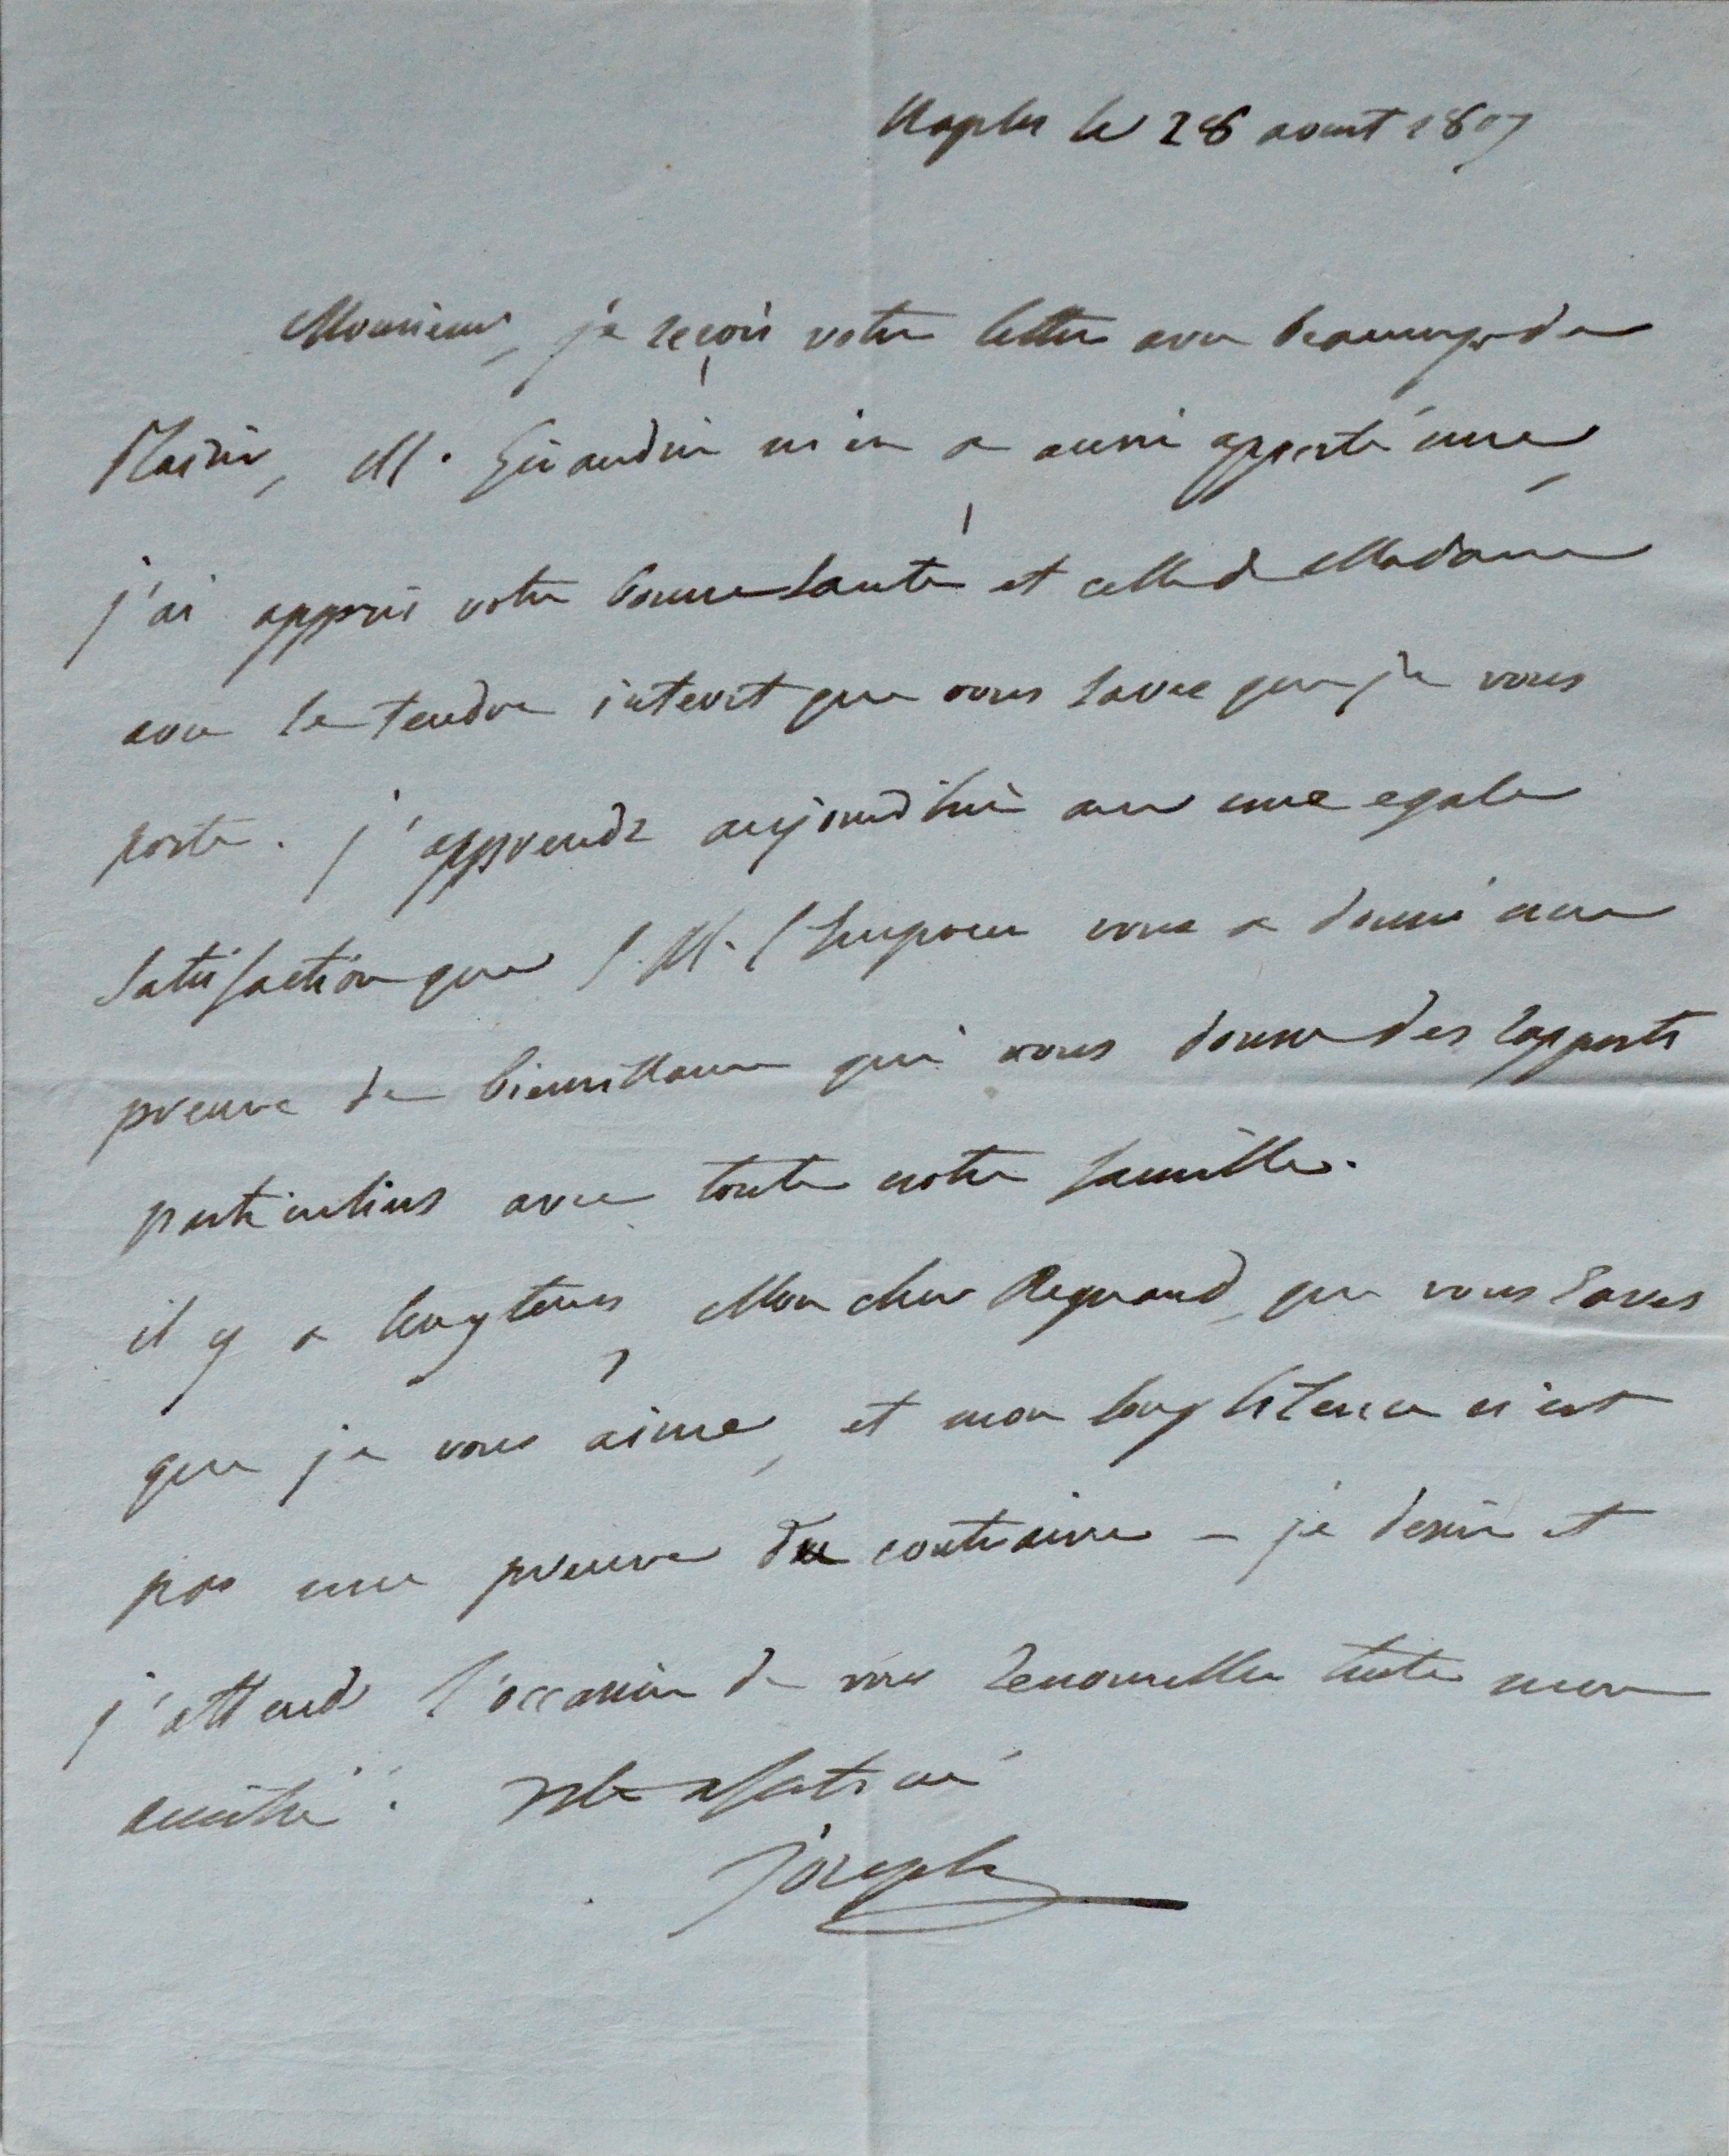 Naples le 28 aout 1807
Monsieur, je reçois votre lettre avec beaucoup de
Plaisir, M. Girardin m'en a aussi apporté une,
j'ai appris votre bonne santé et celle de Madame
avec le tendre interet que vous savez que je vous
porte. j'apprends aujourd'hui avec une egale
satisfaction que S. M. l'Empereur vous a donné une
preuve de bienveillance qui vous donne des rapports
particuliers avec toute notre famille.
il y a longtems, Mon cher Regnaud, que vous savez
que je vous aime, et mon long silence n'est
pas une preuve du contraire – je desire et
j'attends l'occasion de vous renouveller toute mon
amitié. Votre affectionné
Joseph